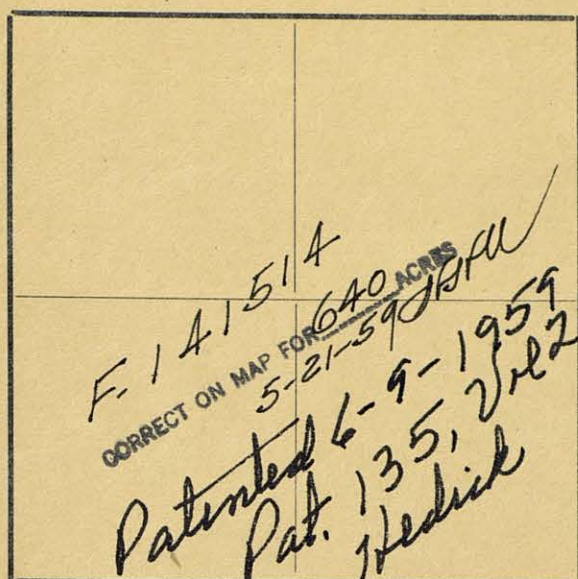 F. 141514
CORRECT ON MAP FOR 640 ACRES
5-21-59
Patented 6-9-1959
Pat. 135, Vol 2
Hedick